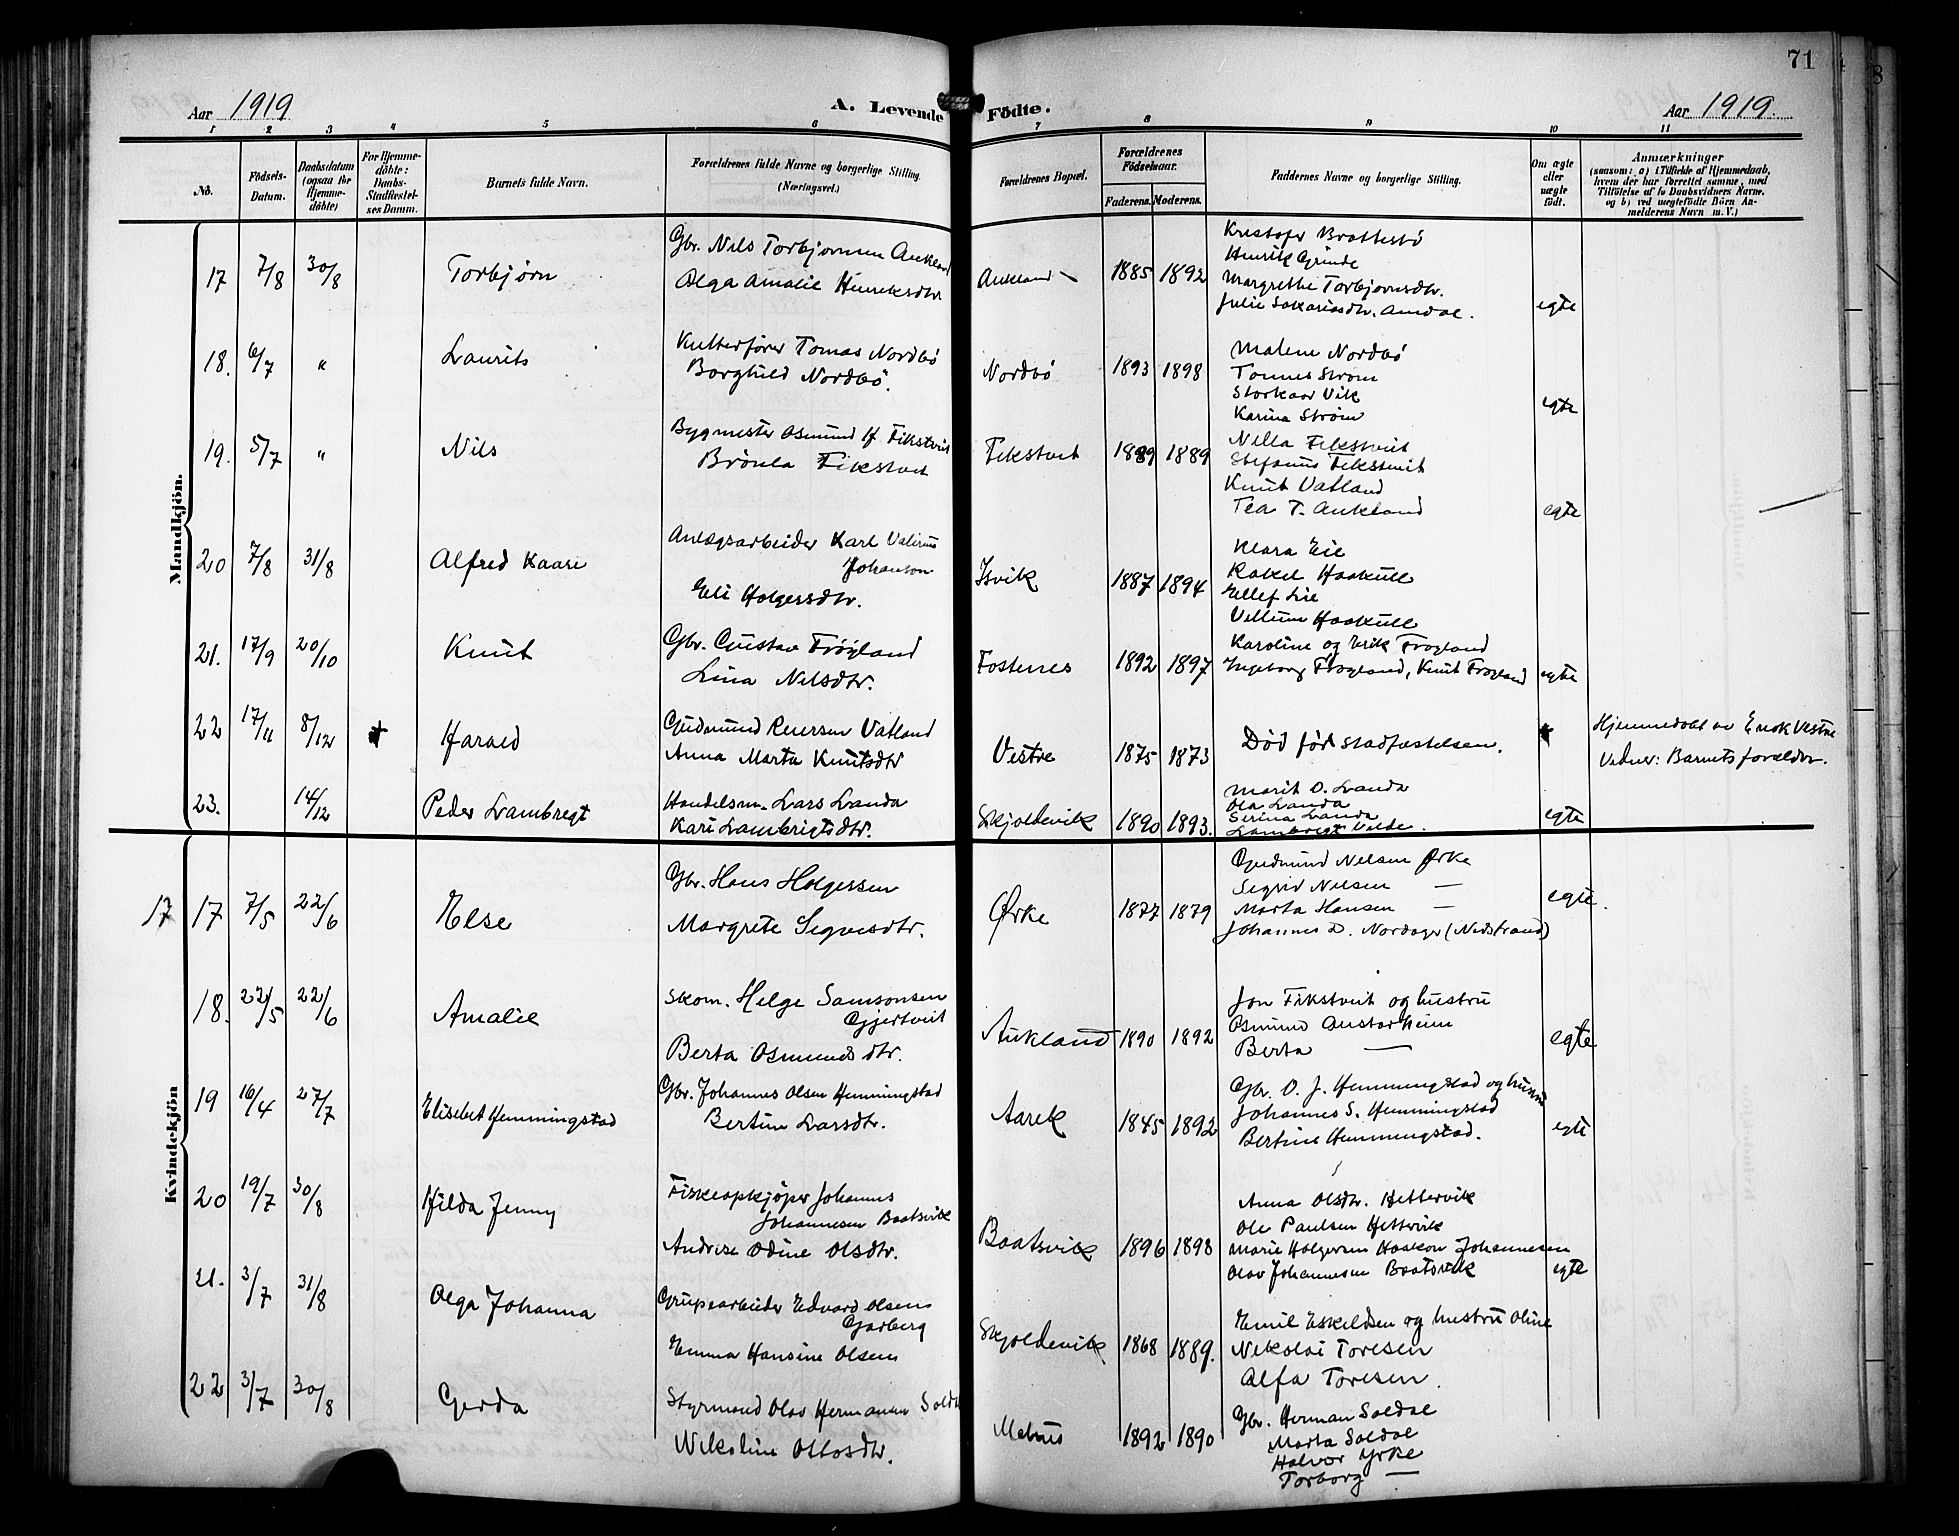 71
Aar 1919
A. Levende Födte.
Aar 1919.
1 2 3 4 5 6 7 8 9 10 11
No.
Födsels-Datum.
Daabsdatum (ogsaa for Hjemme-döbte)
For Hjemme-döbte: Daabs-Stadfæstel-ses Datum.
Barnets fulde Navn.
Forældrenes fulde Navne og borgerlige Stilling.
(Næringsvei.)
Forældrenes Bopæl.
Forældrenes Födselsaar.
Faderens. Moderens.
Faddernes Navne og borgerlige Stilling.
Om ægte eller uægte födt.
Anmærkninger
(saasom: a) i Tilfælde af Hjemmedaab,
hvem der har forrettet samme, med
Tilföielse af to Daabsvidners Navne.
og b) ved uægtefödte Börn An-
melderens Navn m. V.)
Mandkjön.
17 7/8 30/8 Torbjørn
Gbr. Nils Torbjørnsen Aukland
Olga Amalie Henriksdtr
Aukland 1885 1892
Kristofer Brattestø
Henrik Grinde
Margrethe Torbjørnsdtr.
Julie Sakariasdtr. Amdal.
egte
18. 6/7 " Laurits
Kutterfører Tomas Nordbö
Borghild Nordbö.
Nordbö 1893 1898
Malene Nordbö
Tønnes Strøm
Storkaar Vik
Karina Strøm
egte
19. 5/7 " Nils
Bygmester Osmund H. Fikstveit
Brönla Fikstveit
Fikstveit 1889 1889
Nilla Fikstveit
Stefanus Fikstveit
Knut Vatland
Tea T. Aukland
egte
20 7/8 31/8 Alfred Kaare
Anlægsarbeider Karl
Johanson
Eli Holgersdtr.
Isvik 1887 1894
Klara Eie
Rakel Haakull
Ellef Eie
Haakull
21. 17/9 20/10 Knut
Gbr. Gustav Frøyland
Lina Nilsdtr.
Fostenes 1892 1897
Karoline og Erik Frøyland
Ingeborg Frøyland, Knut Frøyland
egte
22 17/11 8/12 † Harald
Gudmund Reiersen Vatland
Anna Marta Knutsdtr
Vestre 1875 1873
Död før stadfæstelsen.
Hjemmedøbt av Enok Vestre
Vidner: Barnets forældre.
23. 14/12 Peder Lambregt
Handelsm. Lars Landa
Kari Lambrigtsdtr.
Skjoldevik 1890 1893.
Marit O. Landa
Ola Landa
Serina Landa
Lambregt Velde.
egte
Kvindekjön
17 17 7/5 22/6 Else
Gbr. Hans Holgersen
Margrete Sigvesdtr.
Ørke 1877 1879
Gudmund Nelsen Ørke
Sigrid Nilsen —
Marta Hansen —
Johannes D. Nordager (Nedstrand)
egte.
18. 22/5 22/6 Amalie
Skom. Helge Samsonsen
Gjertveit
Berta Osmundsdtr.
Aukland 1890 1892
Jon Fikstveit og hustru
Osmund Austarheim
Berta —
egte
19 16/4 27/7 Elisebet Hemmingstad
Gbr. Johannes Olsen Hemmingstad
Bertine Larsdtr.
Aarek 1845 1892
Gbr. O. J. Hemmingstad og hustru
Johannes S. Hemmingstad
Bertine Hemmingstad.
egte
20 19/7 30/8 Hilda Jenny
Fiskeopkjøper Johannes
Johannesen Baatsvik
Andrise Odine Olsdtr.
Baatsvik 1896 1898
Anna Olsdtr. Hettervik
Ole Paulsen Hettvik
Marie Holgersen Haakon Johannesen
Olav Johannesen Baatsvik
egte
21. 3/7 31/8 Olga Johanna
Grupearbeider Edvard Olsen
Garberg
Emma Hansine Olsen
Skjoldevik 1868 1889.
Emil Eskildsen og hustru Oline
Nikolai Toresen
Alfa Toresen.
22 3/7 30/8 Gerda
Styrmand Olav Hermansen Soldal
Nikoline Ottosdtr.
Metnes 1892 1890
Gbr. Herman Soldal
Marta Soldal
Halvor Yrke
Torborg —